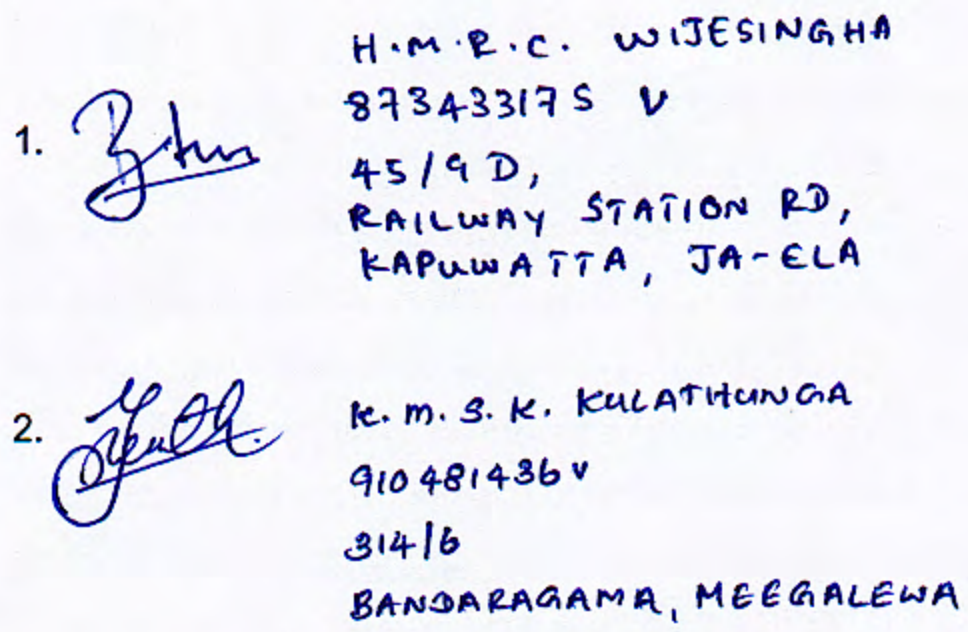 H.M.R.C. WIJESINGHA
873433175 V
1.
45/9 D,
RAILWAY STATION RD,
KAPUWATTA, JA-ELA
2.
K.M.S.K. KULATHUNGA
910481436V
314/6
BANDARAGAMA, MEEGALEWA